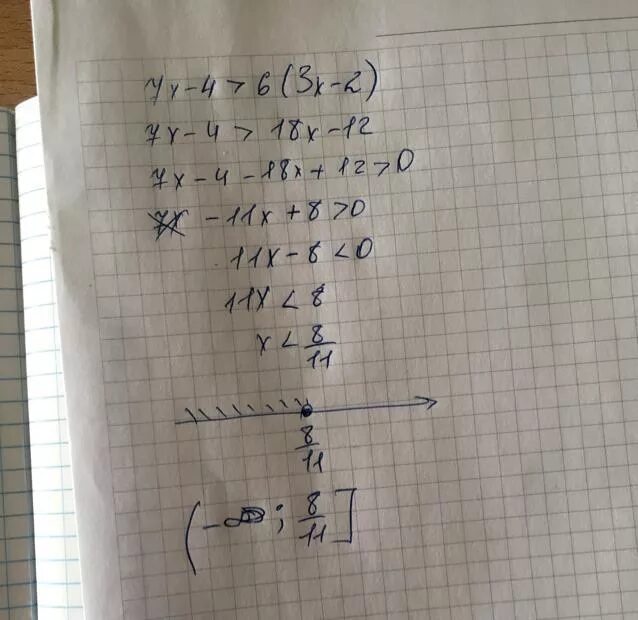 7x-4>6(3x-2)
7x-4>18x-12
7x-4-18x+12>0
-11x+8>0
11x-8<0
11x<8
x<8/11
8/11
(-∞; 8/11]